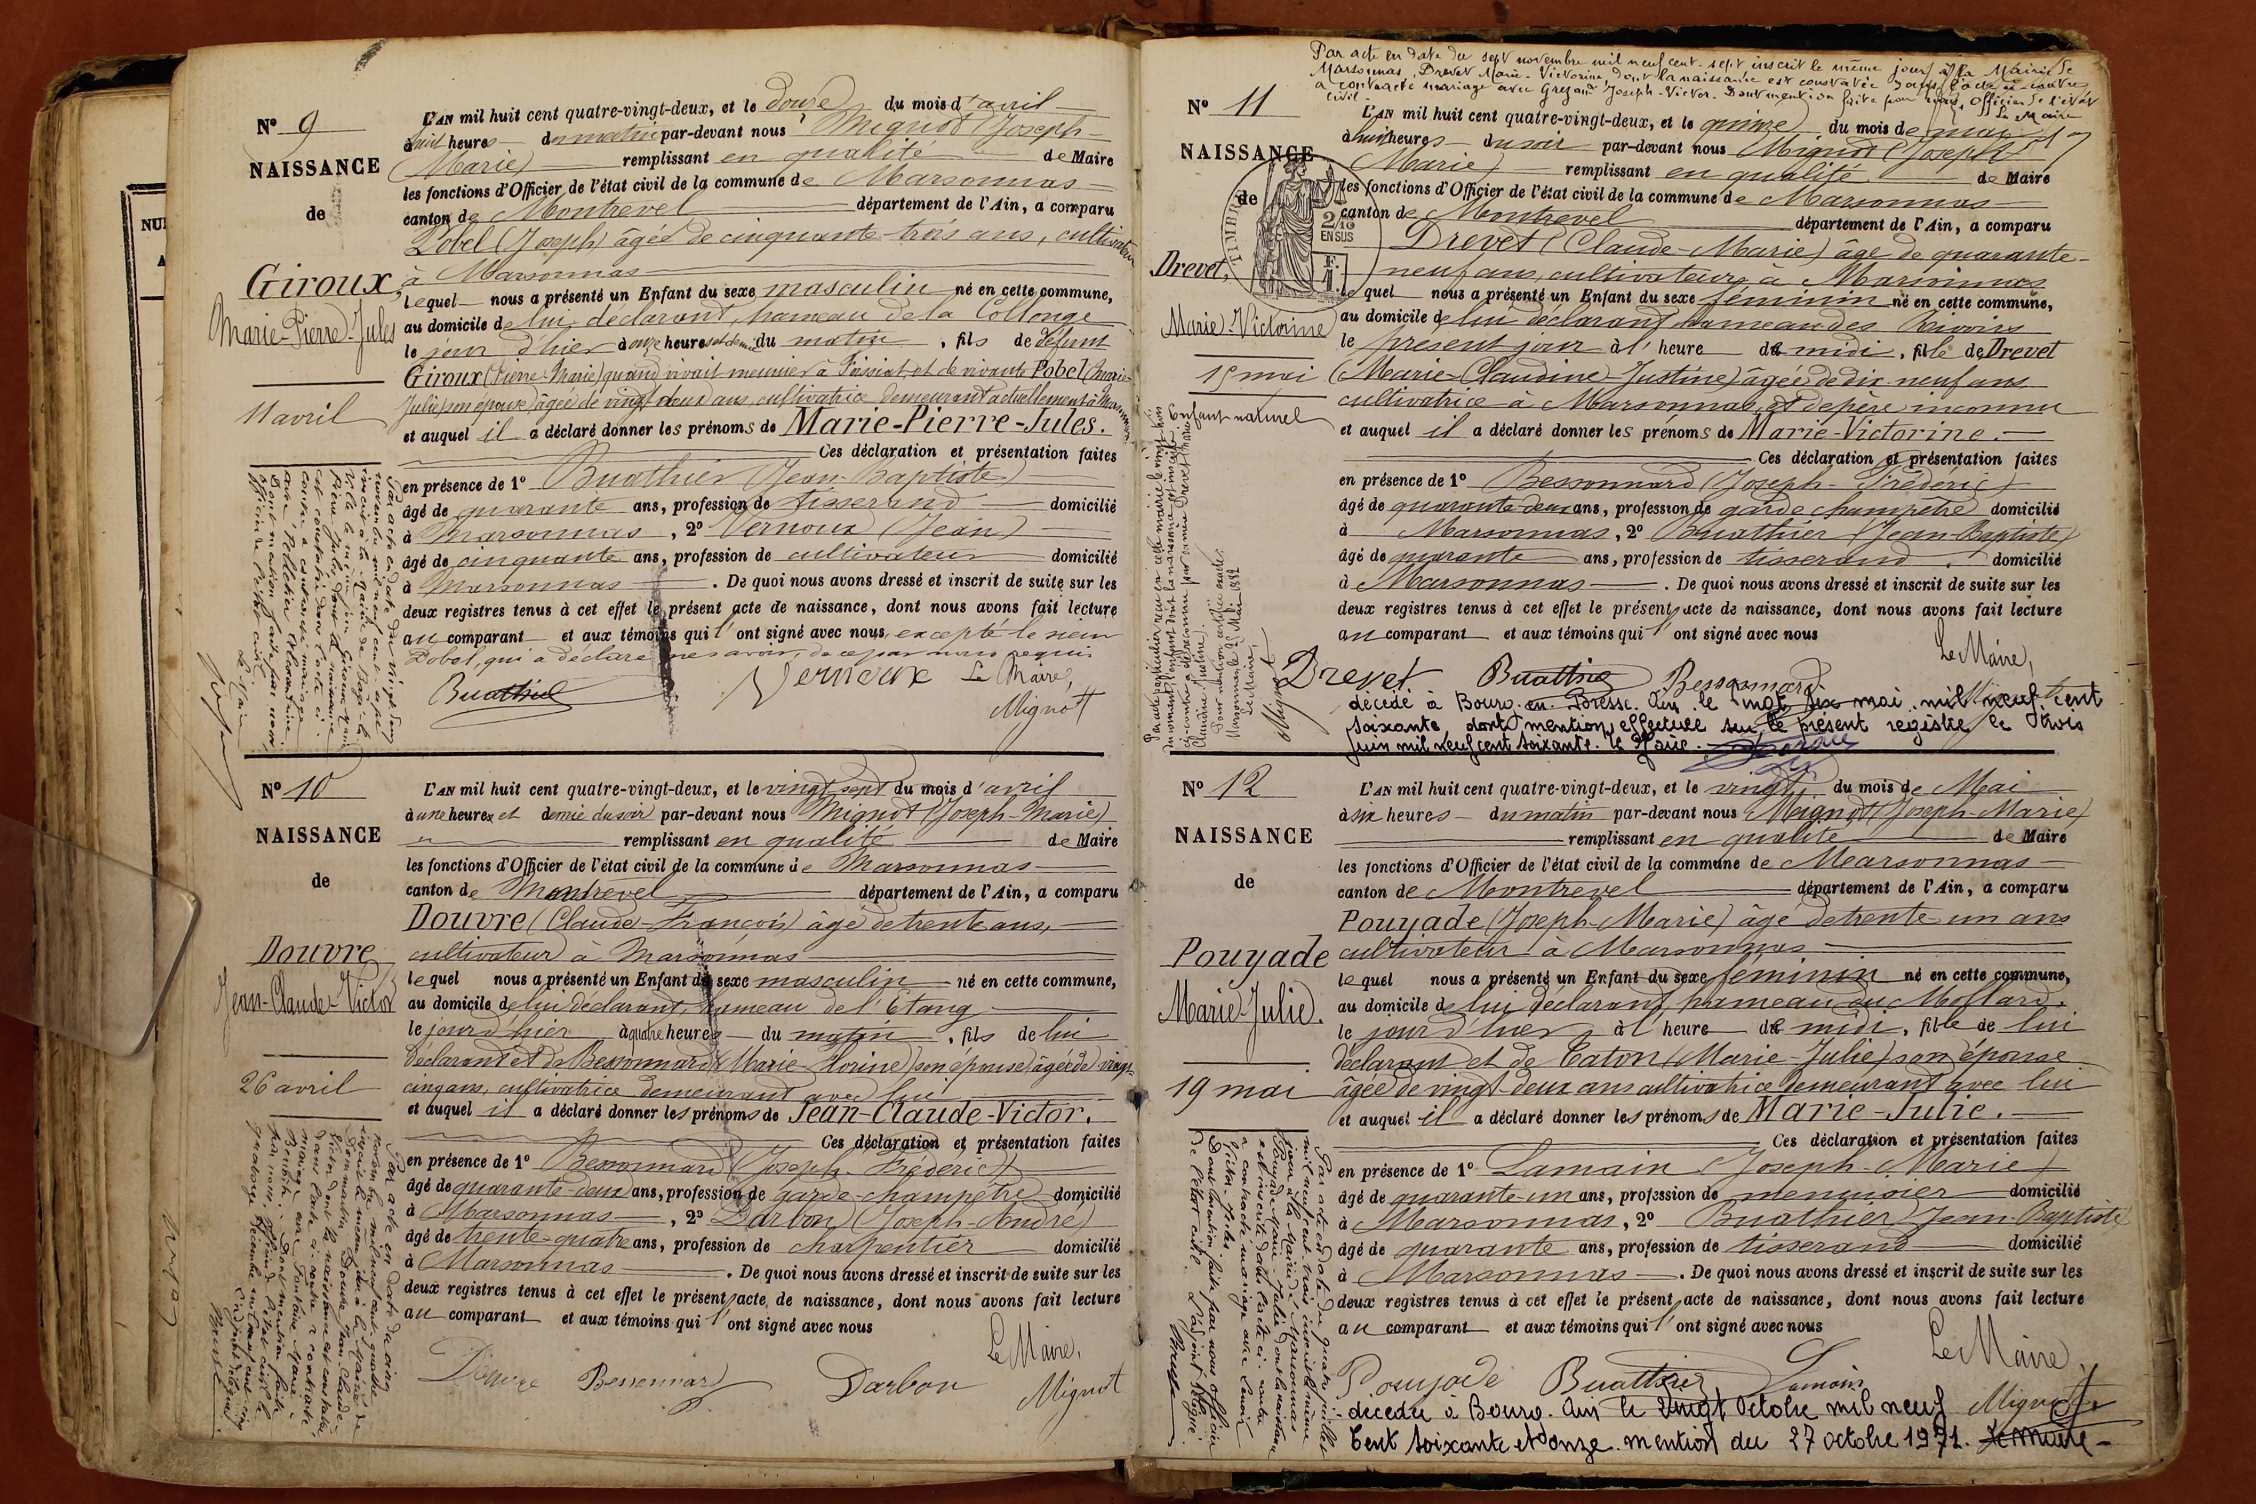 Nº 9
NAISSANCE
de
Giroux,
Marie-Pierre-Jules
11 avril
L'AN mil huit cent quatre-vingt-deux, et le douze du mois d'avril
à huit heures du matin par-devant nous Mignot (Joseph-
Marie) remplissant en qualité de Maire
les fonctions d'Officier de l'état civil de la commune de Marsonnas
canton de Montrevel département de l'Ain, a comparu
Pobel (Joseph) âgé de cinquante-trois ans, cultivateur
à Marsonnas
lequel nous a présenté un Enfant du sexe masculin né en cette commune,
au domicile de lui déclarant, hameau de la Collonge
le jour d'hier à onze heures et demie du matin, fils de défunt
Giroux (Pierre-Marie) quand vivait meunier à Foissiat et de vivante Pobel (Marie-
Julie) son épouse, âgée de vingt deux ans, cultivatrice demeurant actuellement à Marsonnas
et auquel il a déclaré donner les prénoms de Marie-Pierre-Jules.
Ces déclaration et présentation faites
en présence de 1º Buathier (Jean-Baptiste)
âgé de quarante ans, profession de tisserand domicilié
à Marsonnas, 2º Vernoux (Jean)
âgé de cinquante ans, profession de cultivateur domicilié
à Marsonnas. De quoi nous avons dressé et inscrit de suite sur les
deux registres tenus à cet effet le présent acte de naissance, dont nous avons fait lecture
au comparant et aux témoins qui l'ont signé avec nous, excepté le sieur
Pobel, qui a déclaré ne savoir, de ce par nous requis
Buathier Vernoux Le Maire,
Mignot
Par acte en date du vingt-cinq
novembre mil neuf cent
inscrit à la Mairie de
le même jour, Giroux Marie
Pierre Jules, dont la naissance
est constatée dans l'acte ci-
contre a contracté mariage
avec Pelletier
Dont mention faite par nous,
officier de l'état civil
Le Maire
Nº 10
NAISSANCE
de
Douvre
Jean-Claude-Victor
26 avril
L'AN mil huit cent quatre-vingt-deux, et le vingt-sept du mois d'avril
à une heure et demie du soir par-devant nous Mignot (Joseph-Marie)
remplissant en qualité de Maire
les fonctions d'Officier de l'état civil de la commune de Marsonnas
canton de Montrevel département de l'Ain, a comparu
Douvre (Claude-François) âgé de trente ans,
cultivateur à Marsonnas
lequel nous a présenté un Enfant du sexe masculin né en cette commune,
au domicile de lui déclarant, hameau de l'Etang
le jour d'hier à quatre heures du matin, fils de lui
déclarant et de Bessonnard (Marie-Florine) son épouse, âgée de vingt-
cinq ans, cultivatrice demeurant avec lui
et auquel il a déclaré donner les prénoms de Jean-Claude-Victor.
Ces déclaration et présentation faites
en présence de 1º Bessonnard (Joseph-Fréderic)
âgé de quarante-deux ans, profession de garde-champêtre domicilié
à Marsonnas, 2º Darbon (Joseph-André)
âgé de trente-quatre ans, profession de charpentier domicilié
à Marsonnas. De quoi nous avons dressé et inscrit de suite sur les
deux registres tenus à cet effet le présent acte de naissance, dont nous avons fait lecture
au comparant et aux témoins qui l'ont signé avec nous
Le Maire,
Douvre Bessonnard Darbon Mignot
Par acte en date du cinq
novembre mil neuf cent quatre
inscrit le même jour à la Mairie de
Dommartin Douvre Jean Claude
Victor dont la naissance est constatée
dans l'acte ci-contre a contracté
mariage avec Fontaine Marie
Benoite. Dont mention faite
par nous, officier de l'état civil le
quatorze décembre
Par acte en date du sept novembre mil neuf cent sept inscrit le même jour à la Mairie de
Marsonnas, Drevet Marie-Victorine, dont la naissance est constatée dans l'acte ci-contre
a contracté mariage avec Joseph-Victor. Dont mention faite par nous, Officier de l'état
civil. Le Maire
Nº 11
NAISSANCE
de
TIMBRE
2/10
EN SUS
Drevet,
Marie-Victorine
15 mai
Enfant naturel
L'AN mil huit cent quatre-vingt-deux, et le quinze du mois de mai
à huit heures du soir par-devant nous Mignot (Joseph-
Marie) remplissant en qualité de Maire
les fonctions d'Officier de l'état civil de la commune de Marsonnas
canton de Montrevel département de l'Ain, a comparu
Drevet (Claude-Marie) âgé de quarante-
neuf ans, cultivateur à Marsonnas
lequel nous a présenté un Enfant du sexe féminin né en cette commune,
au domicile de lui déclarant hameau des Rivoirs
le présent jour à l'heure de midi, fille de Drevet
(Marie-Claudine-Justine) âgée de dix-neuf ans
cultivatrice à Marsonnas, et de père inconnu
et auquel il a déclaré donner les prénoms de Marie-Victorine.
Ces déclaration et présentation faites
en présence de 1º Bessonnard (Joseph-Fréderic)
âgé de quarante-deux ans, profession de garde champêtre domicilié
à Marsonnas, 2º Buathier (Jean-Baptiste)
âgé de quarante ans, profession de tisserand, domicilié
à Marsonnas. De quoi nous avons dressé et inscrit de suite sur les
deux registres tenus à cet effet le présent acte de naissance, dont nous avons fait lecture
au comparant et aux témoins qui l'ont signé avec nous
Le Maire,
Drevet Buathier Bessonnard Mignot
décédé à Bourg-en-Bresse. Ain le vingt six mai mil neuf cent
soixante dont mention effectuée sur le présent registre le trois
juin mil neuf cent soixante. le Maire.
Par acte particulier reçu en cette mairie le vingt-huit
du moment, l'enfant dont la naissance est inscrite
ci-contre a été reconnu par sa mère Drevet (Marie-
Claudine-Justine).
Pour mention certifiée exacte.
Marsonnas, le 28 Mai 1882
Le Maire,
Mignot
Nº 12
NAISSANCE
de
Pouyade
Marie-Julie.
19 mai
L'AN mil huit cent quatre-vingt-deux, et le vingt du mois de Mai
à six heures du matin par-devant nous Mignot (Joseph-Marie)
remplissant en qualité de Maire
les fonctions d'Officier de l'état civil de la commune de Marsonnas
canton de Montrevel département de l'Ain, a comparu
Pouyade (Joseph-Marie) âgé de trente-un ans
cultivateur à Marsonnas
lequel nous a présenté un Enfant du sexe féminin né en cette commune,
au domicile de lui déclarant, hameau du Mollard.
le jour d'hier à l'heure de midi, fille de lui
déclarant et de Caton (Marie-Julie) son épouse
âgée de vingt-deux ans cultivatrice demeurant avec lui
et auquel il a déclaré donner les prénoms de Marie-Julie.
Ces déclaration et présentation faites
en présence de 1º Lamain (Joseph-Marie)
âgé de quarante-un ans, profession de menuisier domicilié
à Marsonnas, 2º Buathier (Jean-Baptiste)
âgé de quarante ans, profession de tisserand domicilié
à Marsonnas. De quoi nous avons dressé et inscrit de suite sur les
deux registres tenus à cet effet le présent acte de naissance, dont nous avons fait lecture
au comparant et aux témoins qui l'ont signé avec nous
Le Maire,
Pouyade Buathier Lamain Mignot
décédée à Bourg. Ain le vingt Octobre mil neuf
Cent soixante et onze. mention du 27 octobre 1971. Le Maire
Par acte en date du quatre juillet
mil neuf cent trois, inscrit le même
jour à la Mairie de Marsonnas
Pouyade Marie Julie dont la naissance
est inscrite dans l'acte ci-contre
a contracté mariage avec
Victor-Jules.
Dont mention faite par nous officier
de l'état civil. L'adjoint délégué.